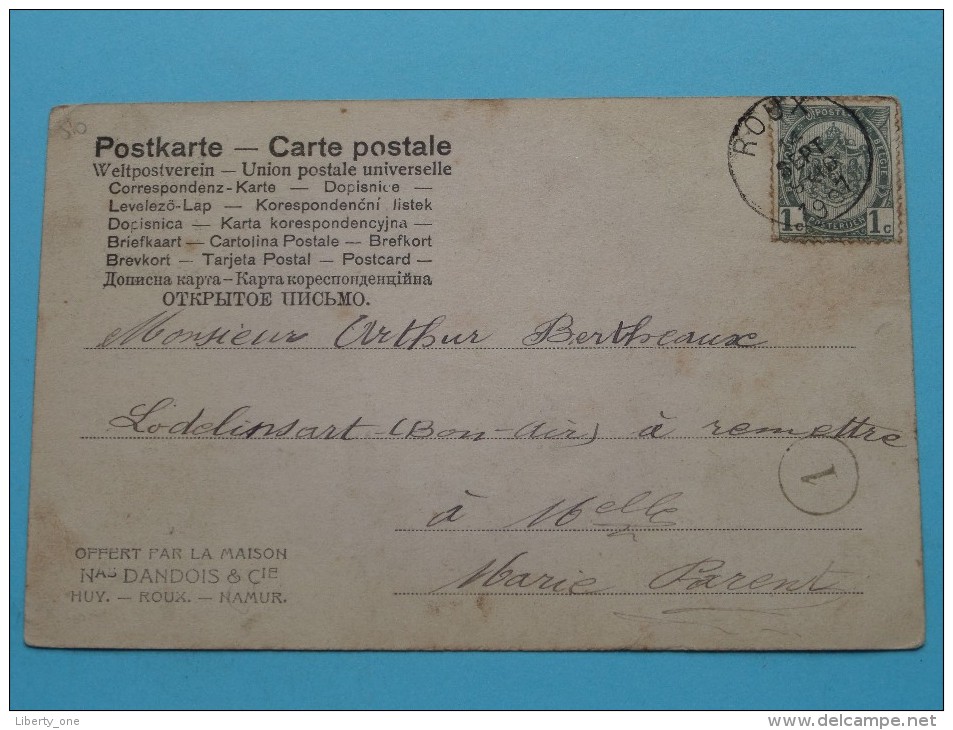 Postkarte — Carte postale
Weltpostverein — Union postale universelle
Correspondenz-Karte — Dopisnice —
Levelező-Lap — Korespondenční listek
Dopisnica — Karta korespondencyjna —
Briefkaart — Cartolina Postale — Brefkort
Brevkort — Tarjeta Postal — Postcard —
Дописна карта — Карта кореспонденційна
ОТКРЫТОЕ ПИСЬМО.
ROUX
SEPT
19
1c 1c
BELGIE
Monsieur Arthur Bertheaux
Lodelinsart (Bon-Air) à remettre
1
à Melle
Marie Parent
OFFERT PAR LA MAISON
NAS DANDOIS & CIE
HUY. — ROUX. — NAMUR.
Liberty_one
www.delcampe.net